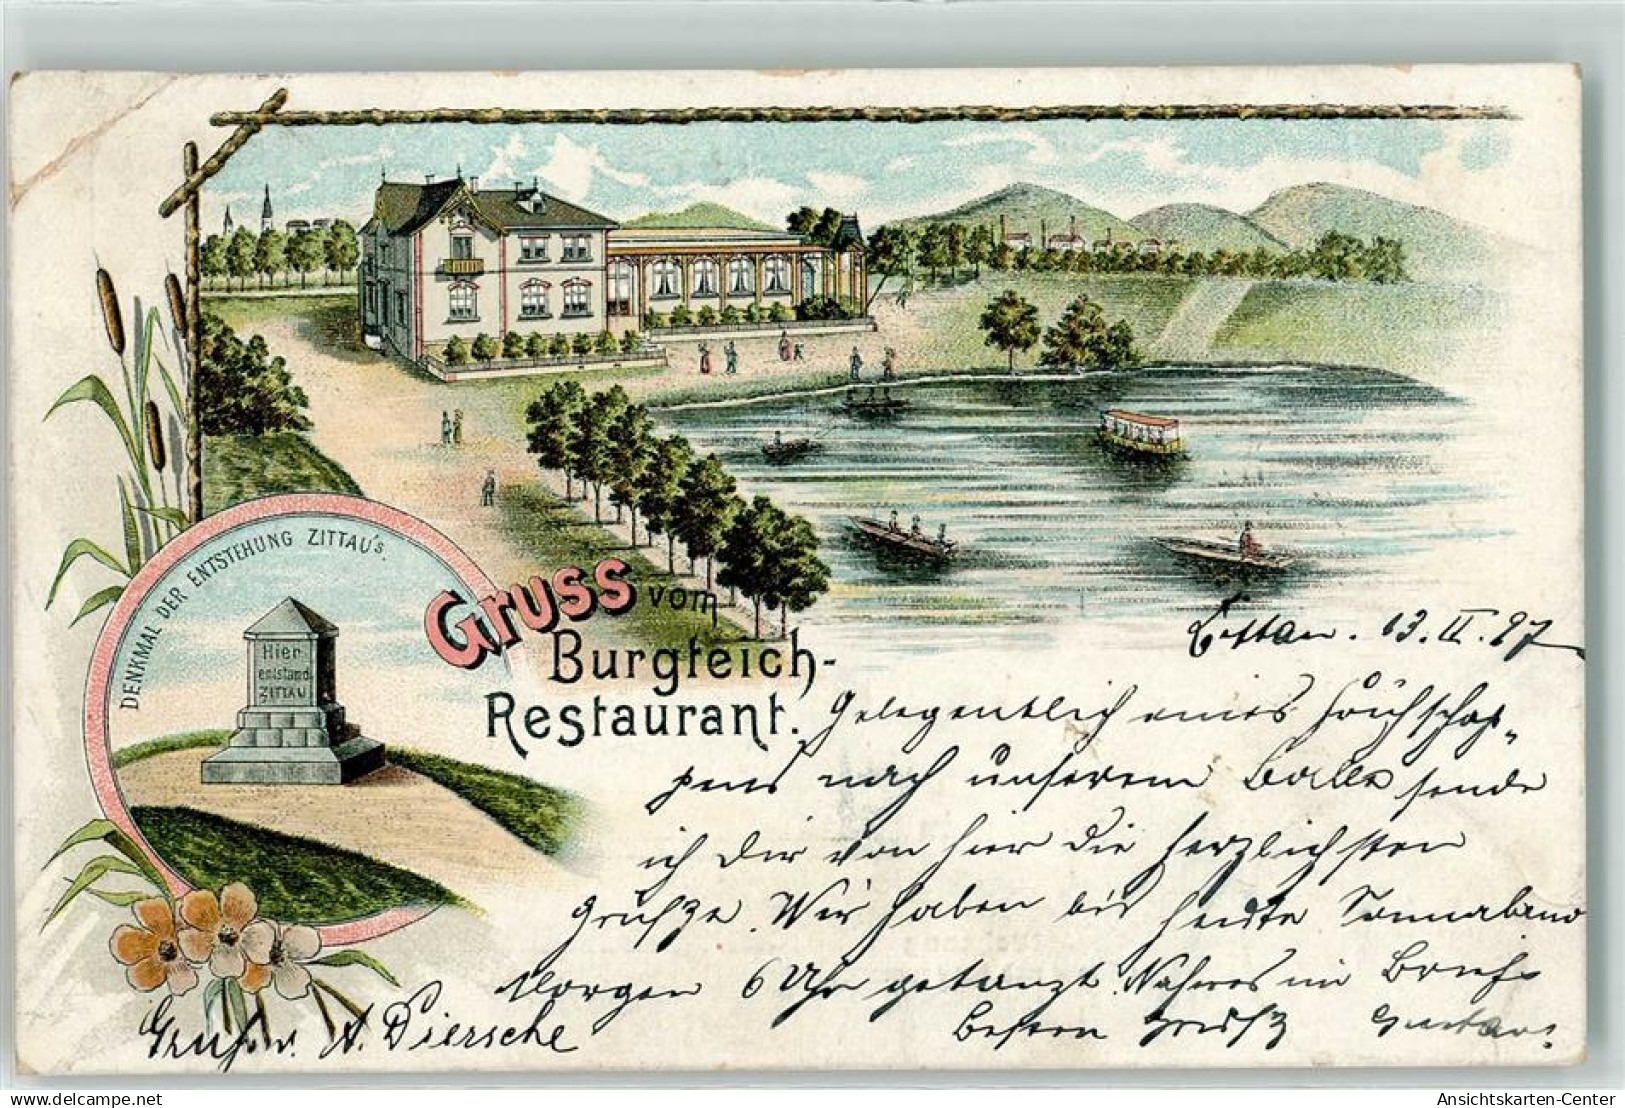 DENKMAL DER ENTSTEHUNG ZITTAU's.
Hier
entstand
ZITTAU
Gruss vom
Burgteich-
Restaurant.
Zittau. 13. II. 97
Gelegentlich eines Frühschop-
pens nach unserem Balle sende
ich Dir von hier die herzlichsten
Grüße. Wir haben bis heute Sonnabend
Morgen 6 Uhr getanzt. Näheres im Briefe
Besten Gruß Gustav.
Gruß v. A. Piersche
delcampe.net
Ansichtskarten-Center